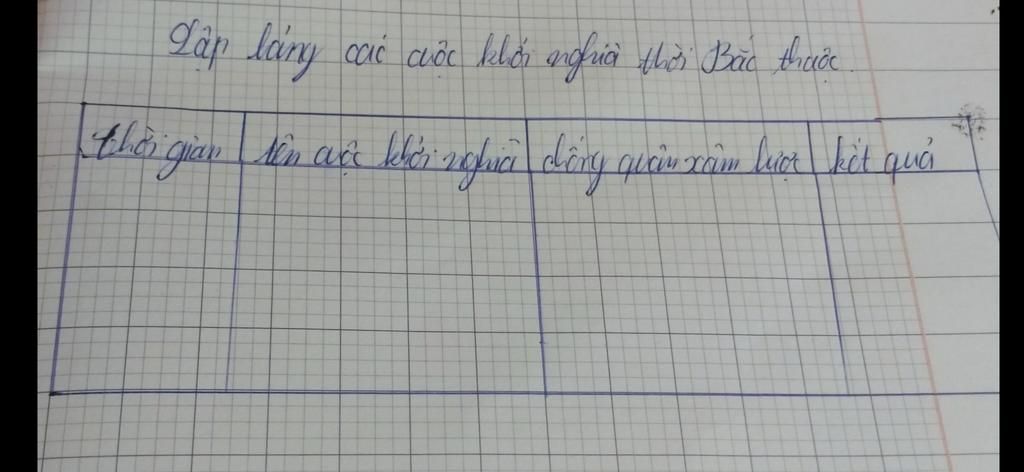 Lập láng các cuộc khởi nghĩa thời Bắc thuộc.
thời gian tên cuộc khởi nghĩa dông quân xâm lược kết quả